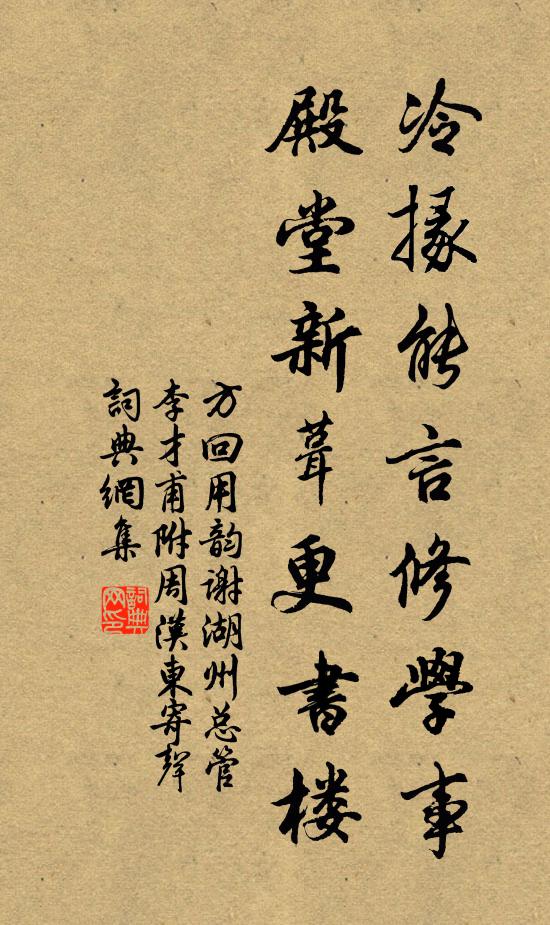 冷掾能言修學事
殿堂新葺更書楼
方回用韵謝湖州总管
李才甫附周漢東寄聲
詞典網集
詞典网印